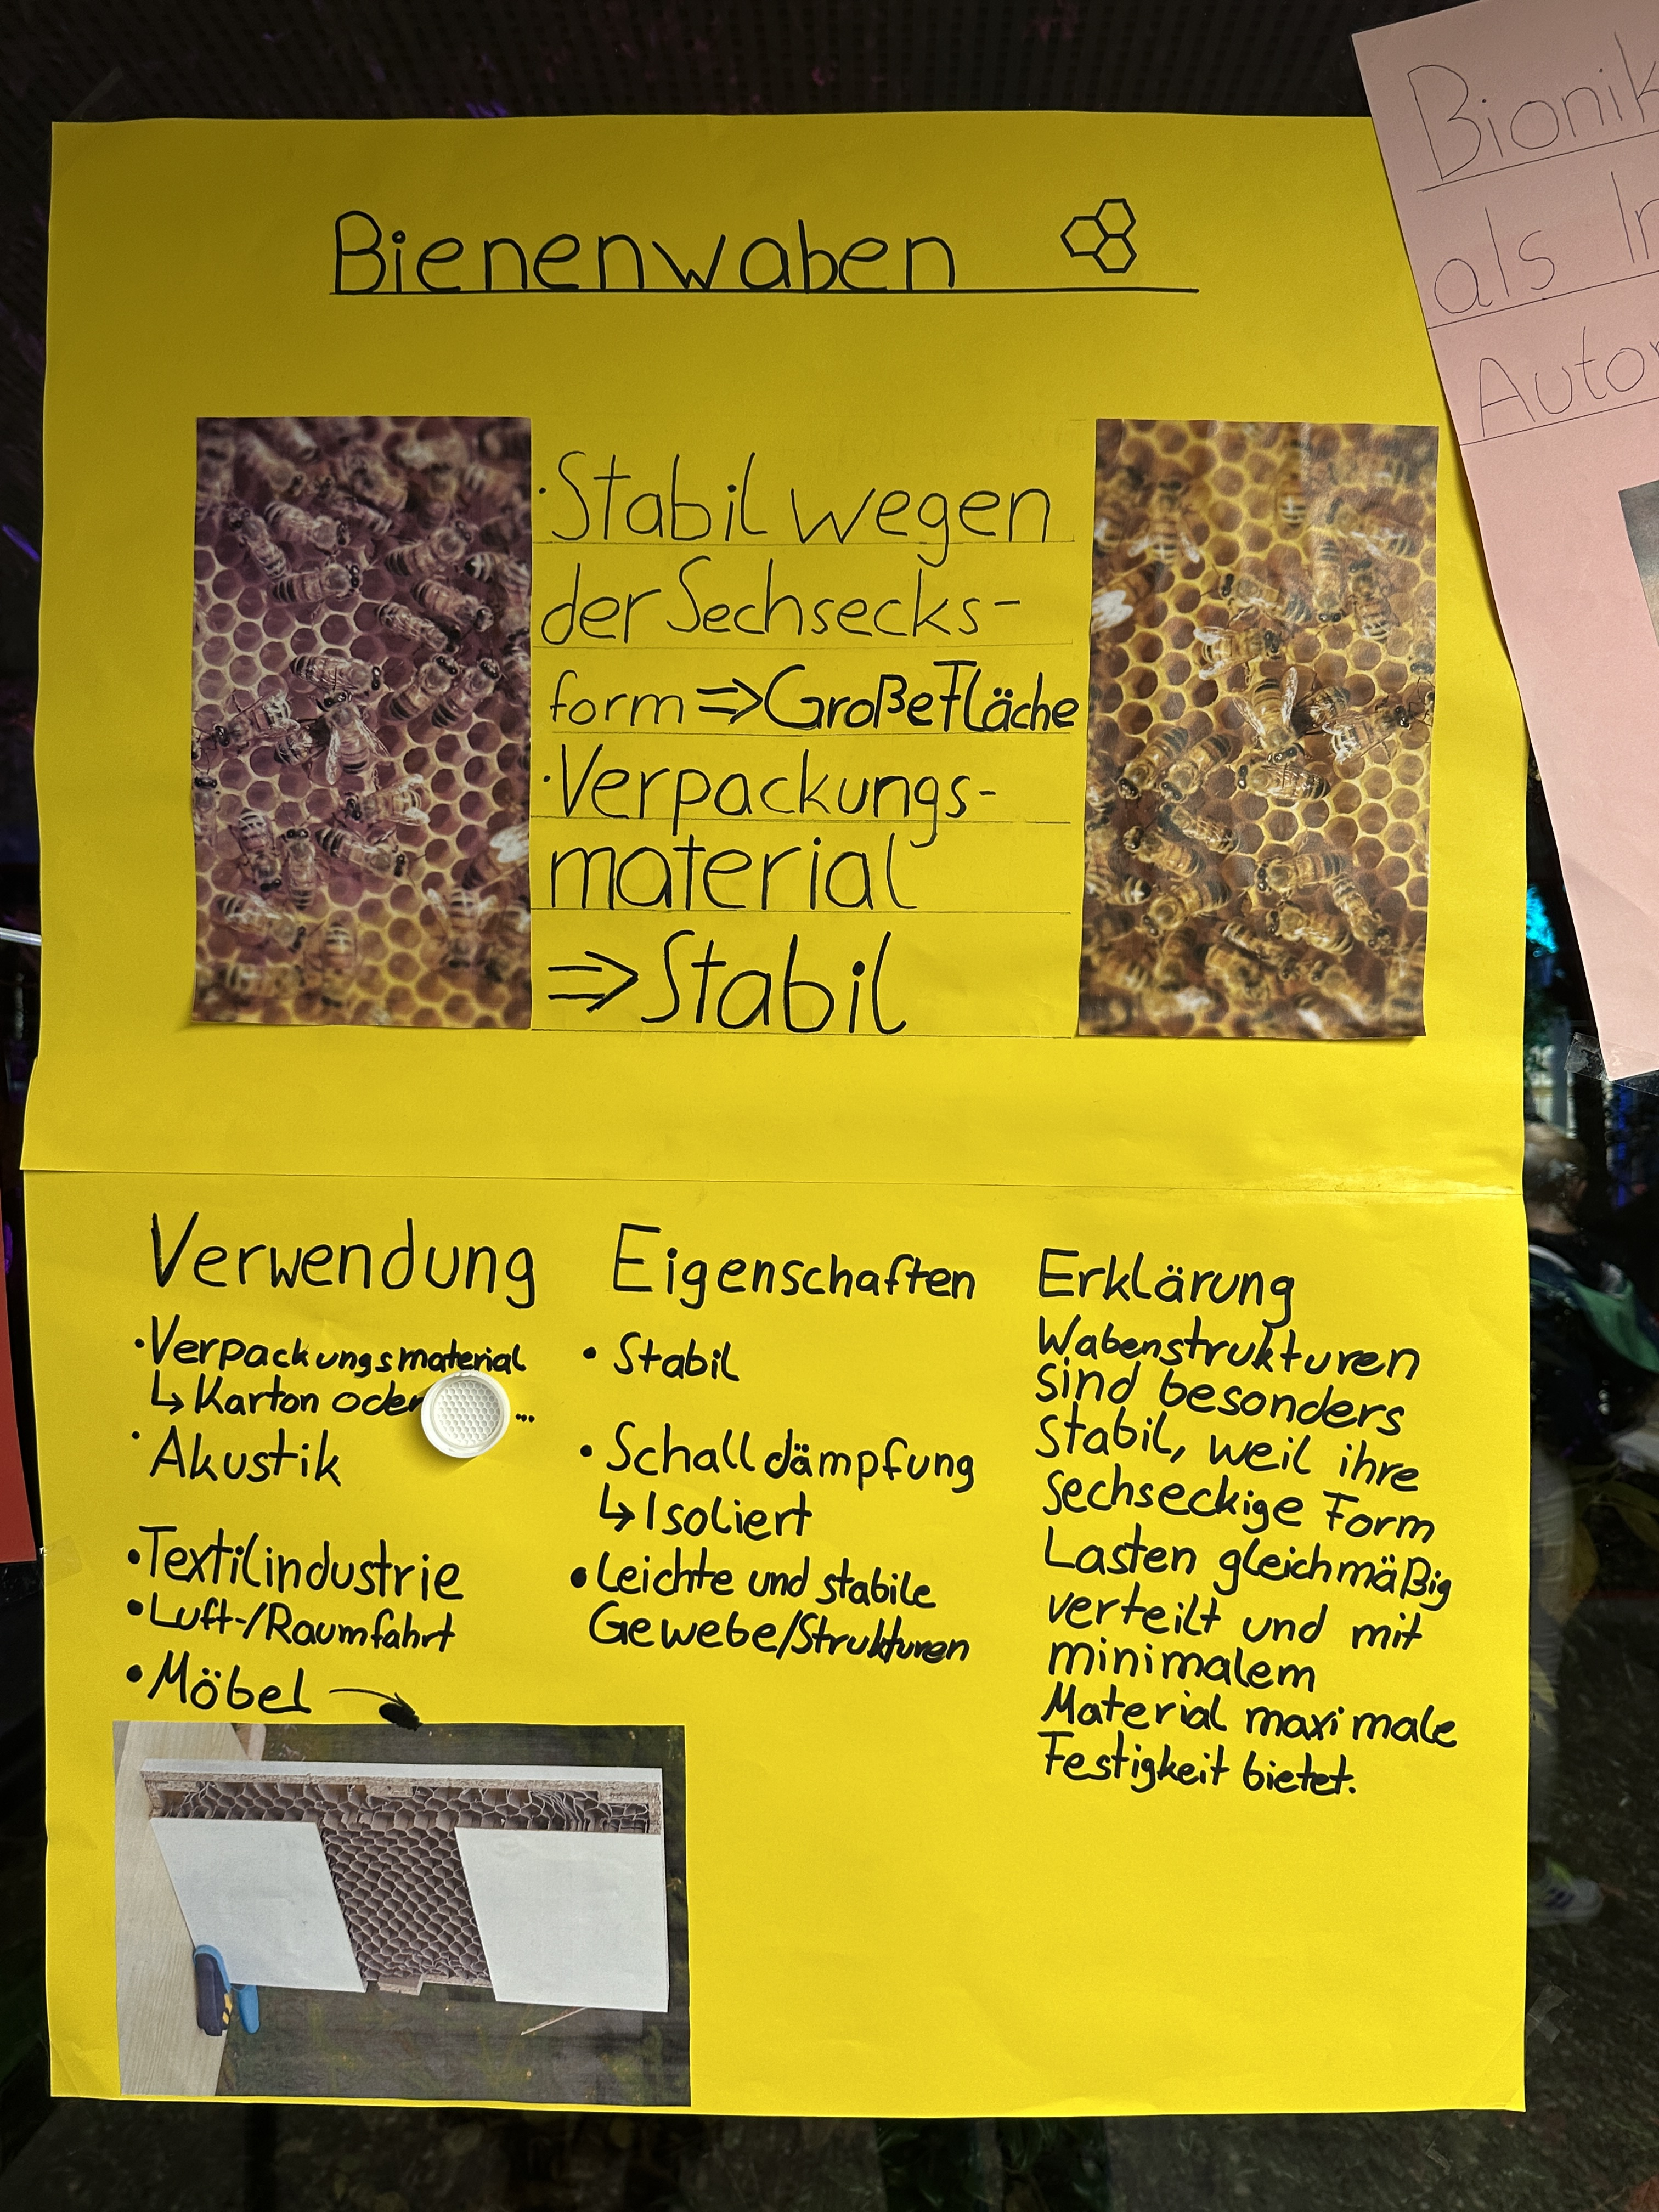 Bienenwaben
·Stabil wegen
der Sechsecks-
form ⇒ Große Fläche
·Verpackungs-
material
⇒ Stabil
Verwendung
·Verpackungsmaterial
↳ Karton oder ...
·Akustik
·Textilindustrie
·Luft-/Raumfahrt
·Möbel
Eigenschaften
·Stabil
·Schalldämpfung
↳ Isoliert
·Leichte und stabile
Gewebe/Strukturen
Erklärung
Wabenstrukturen
sind besonders
stabil, weil ihre
sechseckige Form
Lasten gleichmäßig
verteilt und mit
minimalem
Material maximale
Festigkeit bietet.
Bionik
als